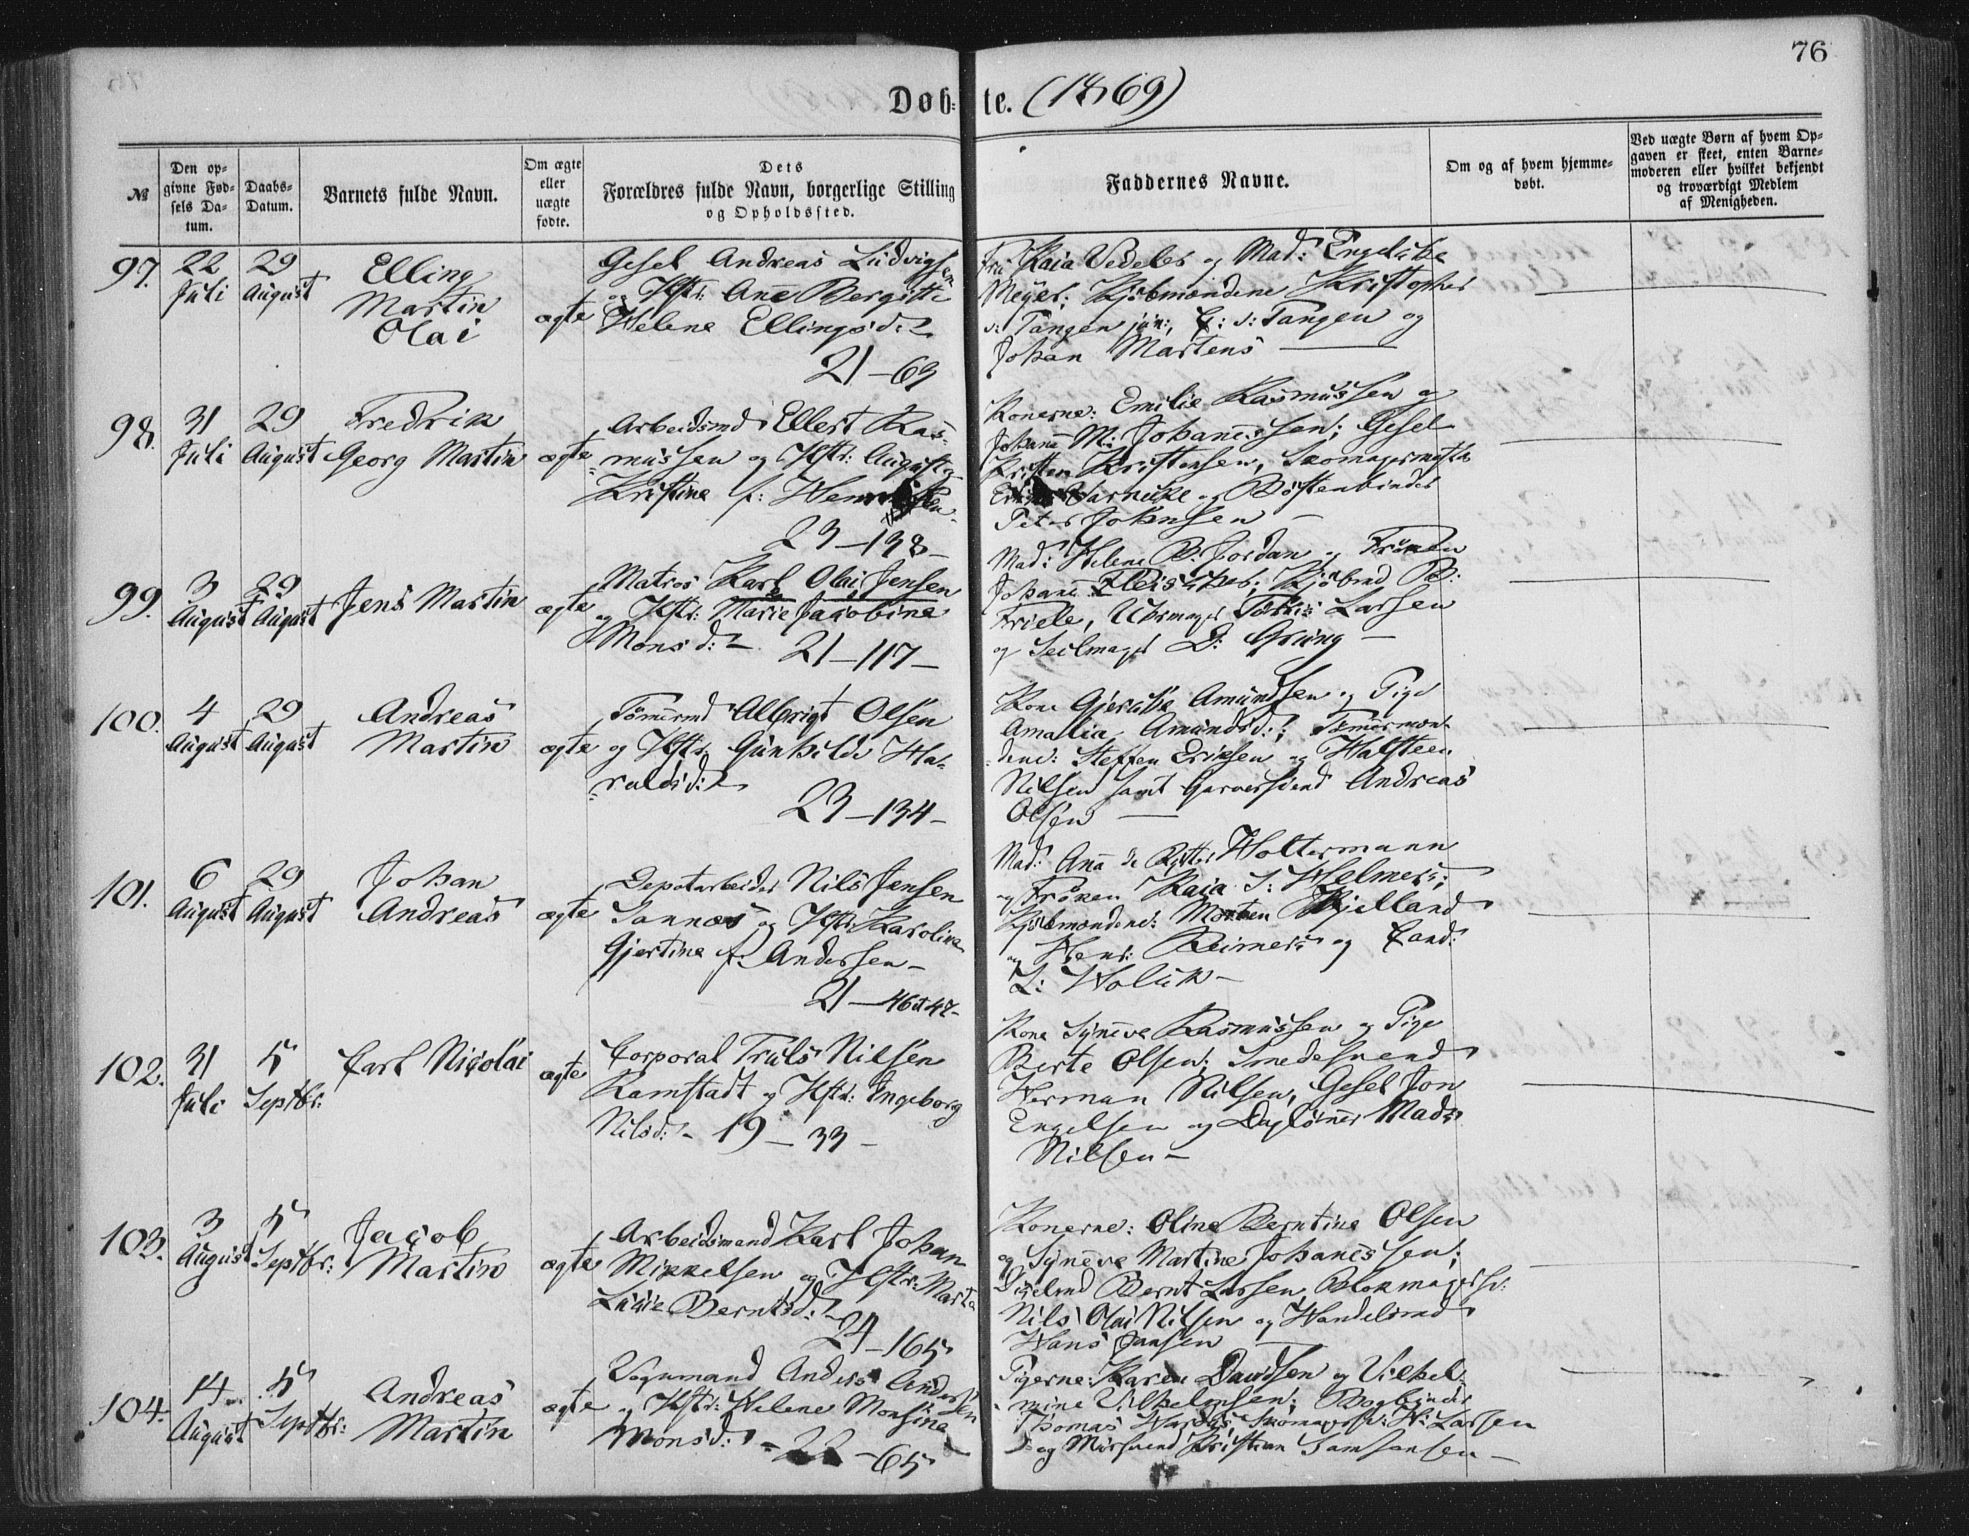 76
Døb= te. (1869)
№
Den op=
givne Fød=
sels Da=
tum.
Daabs=
Datum.
Barnets fulde Navn.
Om ægte
eller
uægte
fødte.
Dets
Forældres fulde Navn, borgerlige Stilling
og Opholdssted.
Faddernes Navne.
Om og af hvem hjemme=
døbt.
Ved uægte Børn af hvem Op=
gaven er skeet, enten Barne=
moderen eller hvilket bekjendt
og troværdigt Medlem
af Menigheden.
97. 22 Juli 29 August
Elling
Martin
Olai
ægte
Gesel Andreas Ludvigsen
og Hstr: Ane Bergitte
Helene Ellingsd:
21–63
Fru Kaia Vedeler og Mad: Engelike
Meyer; Kjøbmændene Kristopher
v: Tangen jun:, C: v: Tangen og
Johan Martens
98. 31 Juli 29 August
Fredrik
Georg Martin
ægte
Arbeidsmd Ellert Ras-
mussen og Hstr: Augusta
Kristine f: Henriksen
23–138–
Konerne: Emilie Rasmussen og
Johane M: Johannessen; Gesel
Kristen Kristensen, Skomagermester
Warncke og Børstenbinder
Peter Johnsen –
99. 3 August 29 August
Jens Martin
ægte
Matros Karl Olai Jensen
og Hstr: Marie Jacobine
Monsd:
21–117–
Mad: Helene B. Jordan og Frøken
Johane Fleischer; Kjøbmd B:
Friele, Uhrmager Larsen
og Seilmager D: Grung –
100. 4 August 29 August
Andreas
Martin
ægte
Tømermd Albrigt Olsen
og Hstr: Gunhilde Ha-
raldsd:
23–134–
Kone Gjertine Amundsen og Pige
Amalia Amundsd:; Tømermæn-
dene: Steffen Eriksen og Halsteen
Nilsen samt Garversvend Andreas
Olsen
101. 6 August 29 August
Johan
Andreas
ægte
Depotarbeider Nils Jensen
Sannæs og Hstr: Karoline
Gjertine f. Andersen –
21–46 à 47–
Mad: Ana de Rytter Woltermann
og Frøken Kaia S: Helmers;
Kjøbmændene: Morten Kjelland
og Henr: Reimers og Cand:
L: Holuk –
102. 31 Juli 5 Septbr:
Carl Nicolai
ægte
Corporal Truls Nilsen
Ramstadt og Hstr: Ingeborg
Nilsd:– 19–33–
Kone Syneve Rasmussen og Pige
Berte Olsen; Smedesvend
Herman Nilsen, Gesel Jon
Engelsen og Dagløner Mads
Nilsen –
103. 3 August 5 Septbr:
Jacob
Martin
ægte
Arbeidsmand Karl Johan
Mikkelsen og Hstr: Marta
Lucie Berntsd:
24–165
Konerne: Oline Berntine Olsen
og Syneve Martine Johannessen;
Bernt Larsen, Blokmagersv:
Nils Olai Nilsen og Handelsmd
Hans Jansen
104. 14 August 5 Septbr:
Andreas
Martin
ægte
Vognmand Anders Andersen
og Hstr: Helene Monsine
Monsd:– 22–65
Pigerne: Karen Davidsen og Vilhel-
mine Vilhelmsen; Bogbinder
Thomas Skomagersv: H: Larsen
og Mursvend Kristian Samsonsen –